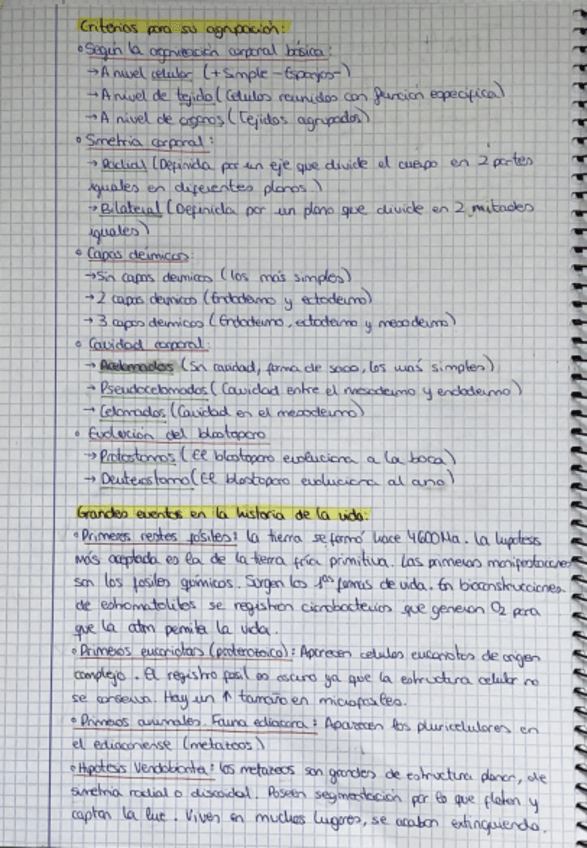 Criterios para su agrupación:
• Según la organización corporal básica:
→ A nivel celular (+ simple - Esponjas-)
→ A nivel de tejido (Células reunidas con función específica)
→ A nivel de órganos (Tejidos agrupados)
• Simetría corporal:
→ Radial (Definida por un eje que divide el cuerpo en 2 partes
iguales en diferentes planos)
→ Bilateral (Definida por un plano que divide en 2 mitades
iguales)
• Capas dérmicas:
→ Sin capas dérmicas (los más simples)
→ 2 capas dérmicas (Endodermo y ectodermo)
→ 3 capas dérmicas (Endodermo, ectodermo y mesodermo)
• Cavidad corporal:
→ Acelomados (Sin cavidad, forma de saco, los más simples)
→ Pseudocelomados (Cavidad entre el mesodermo y endodermo)
→ Celomados (Cavidad en el mesodermo)
• Evolución del blastoporo
→ Protostomos (El blastoporo evoluciona a la boca)
→ Deuterostomo (El blastoporo evoluciona al ano)
Grandes eventos en la historia de la vida:
• Primeros restos fósiles: la tierra se formó hace 4600Ma. La hipótesis
más aceptada es la de la tierra fría primitiva. Las primeras
son los fósiles químicos. Surgen las 1as formas de vida. En bioconstrucciones
de estromatolitos se registran cianobacterias que generan O2 para
que la atm permita la vida.
• Primeros eucariotas (proterozoico): Aparecen células eucariotas de origen
complejo. El registro fósil es oscuro ya que la estructura celular no
se conserva. Hay un ↑ tamaño en microfósiles.
• Primeros animales. Fauna ediacara: Aparecen los pluricelulares en
el ediacariense (metazoos)
• Hipótesis Vendobionta: los metazoos son grandes de estructura planar, de
simetría radial o discoidal. Poseen segmentación por lo que flotan y
captan la luz. Viven en muchos lugares, se acaban extinguiendo.